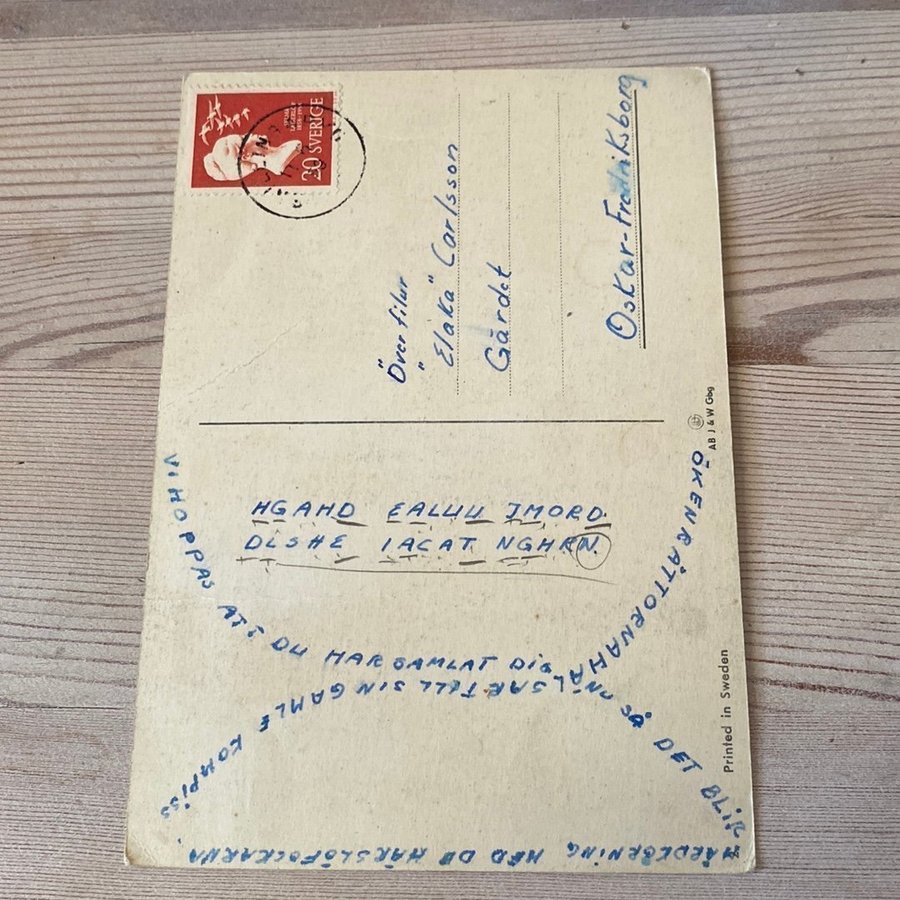 SELMA
LAGERLÖF
20 SVERIGE
"Över filur
"Elaka" Carlsson
Gärdet
Oskar-Fredriksborg
AB J & W Gbg
Printed in Sweden
HGAHD EALUU IMORD
DLSHE IACAT NGHRN
VI HOPPAS ATT DU HAR SAMLAT DIG NU SÅ DET BLIR
HÅRDKÖRNING MED DE HÅRSLÖFOCKARNA.
ÖKENRÅTTORNA HÄLSAR TILL SIN GAMLE KOMPISS